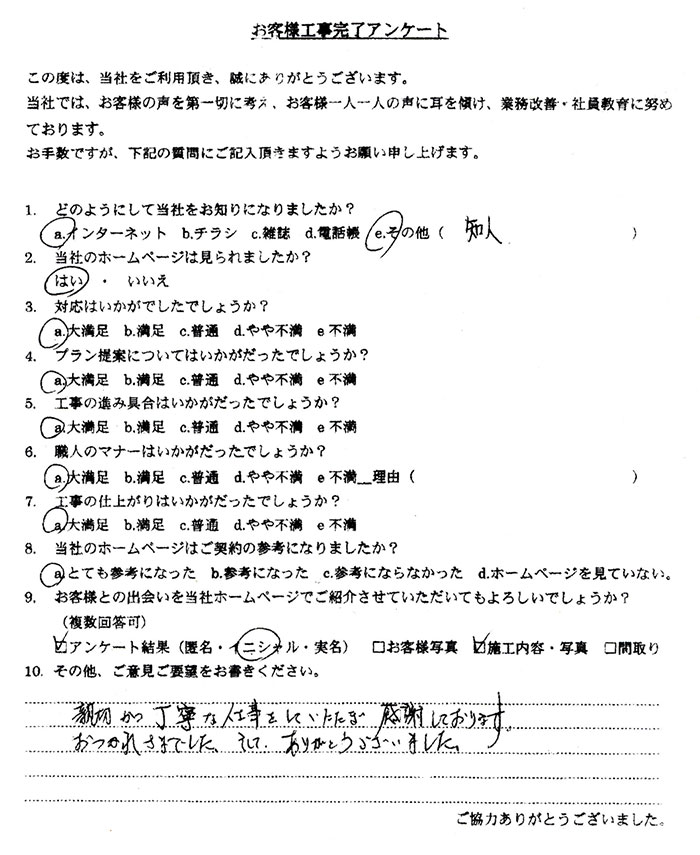 お客様工事完了アンケート
この度は、当社をご利用頂き、誠にありがとうございます。
当社では、お客様の声を第一切に考え、お客様一人一人の声に耳を傾け、業務改善・社員教育に努め
ております。
お手数ですが、下記の質問にご記入頂きますようお願い申し上げます。
1. どのようにして当社をお知りになりましたか？
a.インターネット b.チラシ c.雑誌 d.電話帳 e.その他（ 知人 ）
2. 当社のホームページは見られましたか？
はい ・ いいえ
3. 対応はいかがでしたでしょうか？
a.大満足 b.満足 c.普通 d.やや不満 e 不満
4. プラン提案についてはいかがだったでしょうか？
a.大満足 b.満足 c.普通 d.やや不満 e 不満
5. 工事の進み具合はいかがだったでしょうか？
a.大満足 b.満足 c.普通 d.やや不満 e 不満
6. 職人のマナーはいかがだったでしょうか？
a.大満足 b.満足 c.普通 d.やや不満 e 不満__理由（ ）
7. 工事の仕上がりはいかがだったでしょうか？
a.大満足 b.満足 c.普通 d.やや不満 e 不満
8. 当社のホームページはご契約の参考になりましたか？
a.とても参考になった b.参考になった c.参考にならなかった d.ホームページを見ていない。
9. お客様との出会いを当社ホームページでご紹介させていただいてもよろしいでしょうか？
（複数回答可）
☑アンケート結果（匿名・イニシャル・実名） □お客様写真 ☑施工内容・写真 □間取り
10. その他、ご意見ご要望をお書きください。
親切かつ丁寧な仕事をしていただき 感謝しております。
おつかれさまでした。そして、ありがとうございました。
ご協力ありがとうございました。